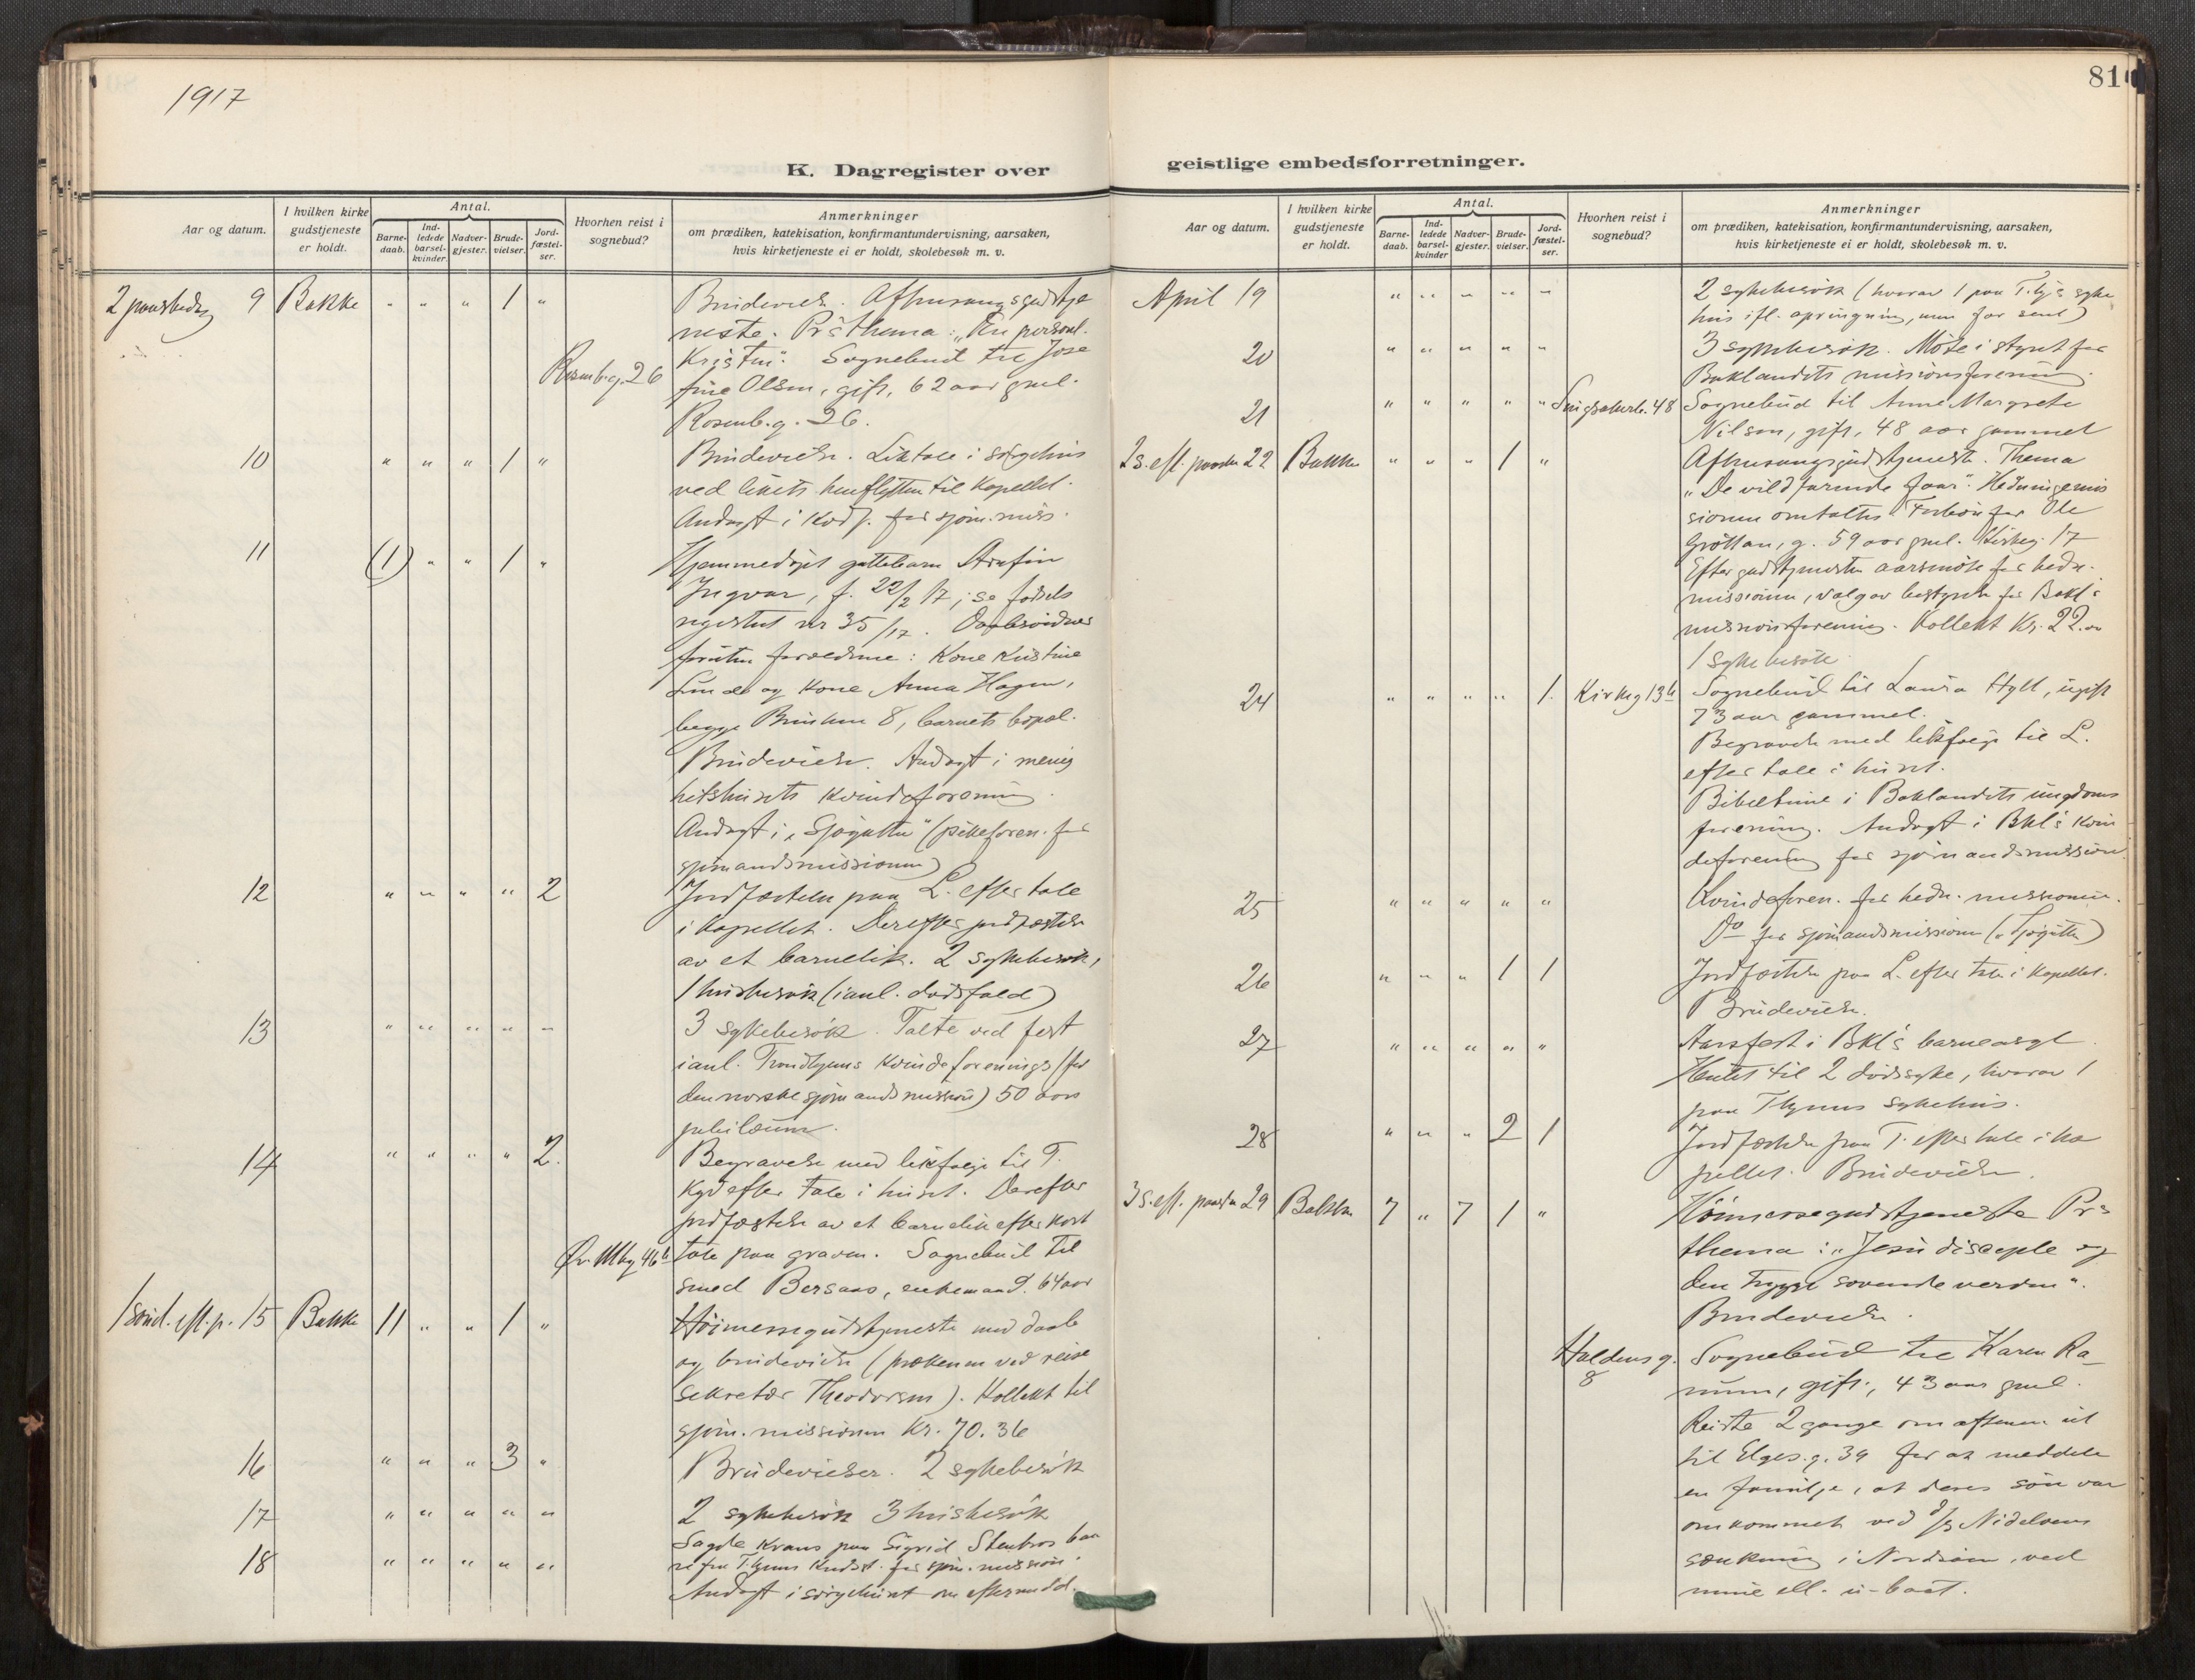 1917
81
K. Dagregister over
geistlige embedsforretninger.
Aar og datum.
I hvilken kirke gudstjeneste er holdt.
Antal.
Barne-daab.
Ind-ledede barsel-kvinder.
Nadver-gjester.
Brude-vielser.
Jord-fæstel-ser.
Hvorhen reist i sognebud?
Anmerkninger
om prædiken, katekisation, konfirmantundervisning, aarsaken,
hvis kirketjeneste ei er holdt, skolebesøk m. v.
2 paaskedag 9 Bakke " " " 1 " Brudevielse. Aftensangsgudstje
neste. Pr's thema: "En personl.
Rosenb.g. 26 Kristen". Sognebud til Jose
fine Olsen, gift, 62 aar gml.
Rosenb.g. 26.
10 " " " 1 " Brudevielse. Liktale i sørgehus
ved likets henflytten til Kapellet.
Andagt i Kvdf. for sjøm.miss.
11 (1) " " 1 " Hjemmedøpt guttebarn Arafin
Ingvar, f. 22/2 17, se fødsels
registret nr 35/17. Daabsvidner
foruten forældrene: Kone Kristine
Lunde og kone Anna Hagen,
begge 8, barnets bopæl.
Brudevielse. Andagt i menig
hetshusets kvindeforening.
Andagt i "Sjøgutten" (pikeforen. for
sjømandsmissionen)
12 " " " " 2 Jordfæstelse paa L. efter tale
i Kapellet. Derefter jordfæstelse
av et barnelik. 2 sykebesøk,
1 husbesøk (ianl. dødsfald)
13 " " " " " 3 sykebesøk. Talte ved fest
ianl. Trondhjems kvindeforenings (for
den norske sjømandsmission) 50 aars
jubilæum.
14 " " " " 2. Begravelse med likfølge til T.
Kgd efter tale i huset. Derefter
jordfæstelse av et barnelik efter kort
Øv. Mbg 46b tale paa graven. Sognebud til
smed Bersaas, enkemand. 64 aar
1 sønd. eft. p. 15 Bakke 11 " " 1 " Høimessegudstjeneste med daab
og brudevielse (prækenen ved reise
sekretær Theodorsen). Kollekt til
sjøm.missionen Kr. 70.36
16 " " " 3 " Brudevielser. 2 sykebesøk
17 " " " " " 2 sykebesøk 3 husbesøk
18 " " " " " Lagde krans paa Sigrid Stenbros baa
re fra T.hjems Kredsst. for sjøm.mission.
Andagt i sørgehuset om eftermidd.
April 19 " " " " " 2 sykebesøk (hvorav 1 paa T.hj's syke
hus ifl. opringning, men for sent)
20 " " " " " 3 sykebesøk. Møte i styret for
Baklandets missionsforening.
21 " " " " " Singsakerb. 48 Sognebud til Anne Margrete
Nilsen, gift, 48 aar gammel
2 s. eft. paaske 22 Bakke " " " 1 " Aftensangsgudstjeneste. Thema
"De vildfarende faar". Hedningemis
sionen omtaltes. Forbøn for Ole
Grøttan, g. 59 aar gml. Kirkeg. 17
Efter gudstjenesten aarsmøte for hedn.
missionen, valg av bestyrelse for Bakl's
missionsforening. Kollekt Kr. 22.00
1 sykebesøk
24 " " " " 1. Kirkeg 13b Sognebud til Laura Hyll, ugift
73 aar gammel.
Begravelse med likfølge til L.
efter tale i huset.
Bibeltime i Baklandets ungdoms
forening. Andagt i Bkl's kvin
deforening for sjømandsmission.
25 " " " " " Kvindeforen. for hedn. missionen.
Do for sjømandsmissionen ("Sjøgutten")
26 " " " 1 1 Jordfæstelse paa L. efter tale i Kapellet.
Brudevielse.
27 " " " " " Aarsfest i Bkl's barneasyl.
Hentet til 2 dødssyke, hvorav 1
paa T.hjems sykehus.
28 " " " 2 1 Jordfæstelse paa T. efter tale i ka
pellet. Brudevielse.
3 s. eft. paaske 29 Bakke 7 " 7 1 " Høimessegudstjeneste Pr's
thema: "Jesu disciple og
den trygge sovende verden".
Brudevielse.
Haldens g. 8 Sognebud til Karen Ra
num, gift, 43 aar gml.
Reiste 2 gange om aftenen ut
til Elges.g. 39 for at meddele
en familje, at deres søn var
omkommet ved d/s Nidelvens
sænkning i Nordsjøen, ved
mine ell. u-baat.